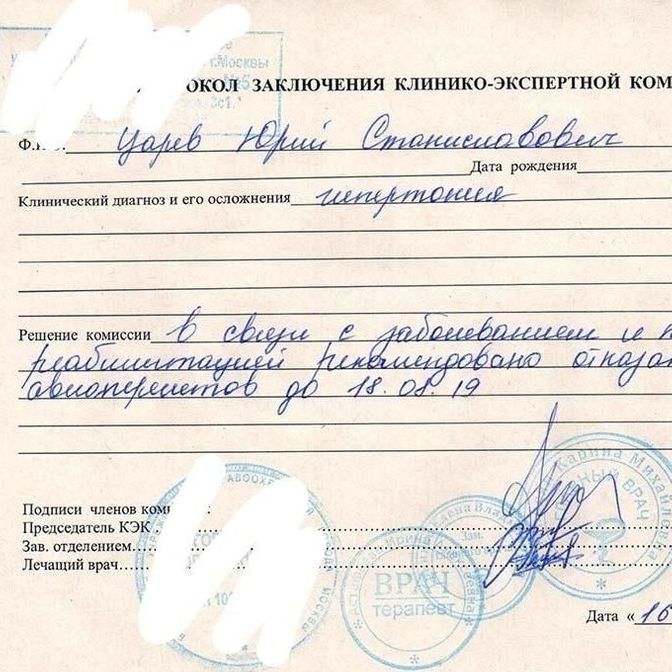 г.Москвы
№5
ОКОЛ ЗАКЛЮЧЕНИЯ КЛИНИКО-ЭКСПЕРТНОЙ КОМ
Ф.И.О. Царев Юрий Станиславович
Дата рождения
Клинический диагноз и его осложнения гипертония
Решение комиссии в связи с заболеванием и
реабилитацией рекомендовано отказа
авиоперелетов до 18.08.19
Подписи членов ком
Председатель КЭК
Зав. отделением
Лечащий врач
Карина Михайловна
ВРАЧ
Зам.
ВРАЧ
терапевт
Дата «16